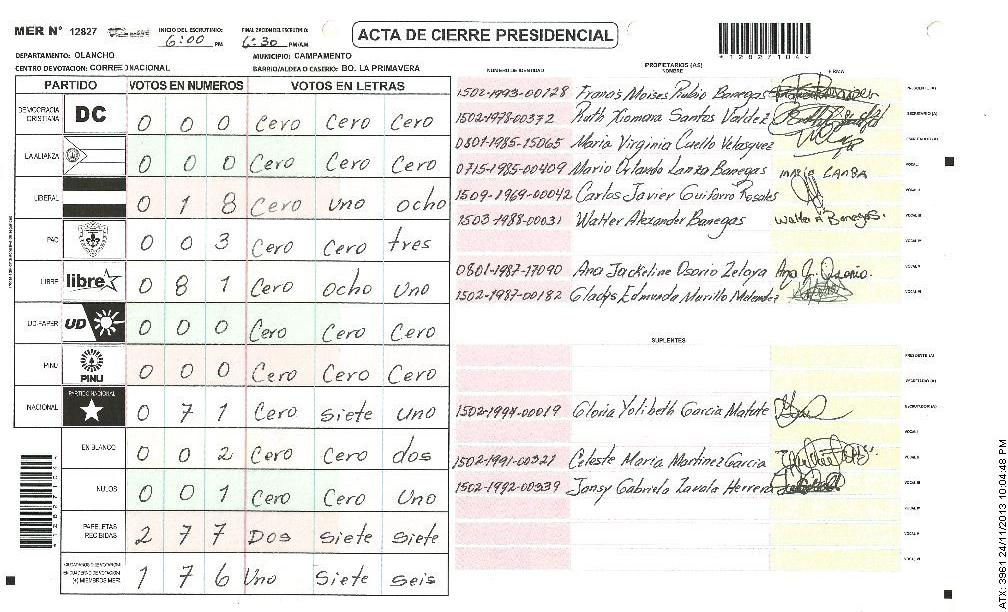 MER N° 12827
INICIO DEL ESCRUTINIO: 6:00 PM
FINALIZACION DEL ESCRUTINIO: 6:30 PM/AM
ACTA DE CIERRE PRESIDENCIAL
*12827104*
DEPARTAMENTO: OLANCHO
MUNICIPIO: CAMPAMENTO
CENTRO DE VOTACION: CORREO NACIONAL
BARRIO/ALDEA O CASERIO: BO. LA PRIMAVERA
PARTIDO VOTOS EN NUMEROS VOTOS EN LETRAS
DEMOCRACIA CRISTIANA DC 0 0 0 Cero Cero Cero
LA ALIANZA 0 0 0 Cero Cero Cero
LIBERAL 0 1 8 Cero uno ocho
PAC 0 0 3 Cero Cero tres
LIBRE libre 0 8 1 Cero ocho uno
UD-FAPER UD 0 0 0 Cero Cero Cero
PINU PINU 0 0 0 Cero Cero Cero
NACIONAL PARTIDO NACIONAL 0 7 1 Cero siete uno
EN BLANCO 0 0 2 Cero Cero dos
NULOS 0 0 1 Cero Cero Uno
PAPELETAS RECIBIDAS 2 7 7 Dos siete siete
(+) MIEMBROS MER 1 7 6 Uno siete seis
PROPIETARIOS (AS)
NUMERO DE IDENTIDAD NOMBRE FIRMA
1502-1993-00128 Franos Moises Rubio Banegas PRESIDENTE (A)
1502-1978-00372 Ruth Xiomara Santos Valdez SECRETARIO (A)
0801-1985-15065 Maria Virginia Cuello Velasquez ESCRUTADOR (A)
0715-1985-00409 Mario Orlando Lanza Banegas VOCAL I
1509-1969-00042 Carlos Javier Guifarro Rosales VOCAL II
1503-1988-00031 Walter Alexander Banegas Walter A Banegas. VOCAL III
VOCAL IV
0801-1987-17090 Ana Jackeline Osorio Zelaya VOCAL V
1502-1987-00182 Gladys Edmunda Murillo Melendez VOCAL VI
SUPLENTES
PRESIDENTE (A)
SECRETARIO (A)
1502-1994-00019 Gloria Yolibeth Garcia Matute ESCRUTADOR (A)
VOCAL I
1502-1991-00321 Celeste Maria Martinez Garcia VOCAL II
1502-1992-00339 Jansy Gabriela Zavala Herrera VOCAL III
VOCAL IV
VOCAL V
VOCAL VI
ATX: 3961 24/11/2013 10:04:48 PM